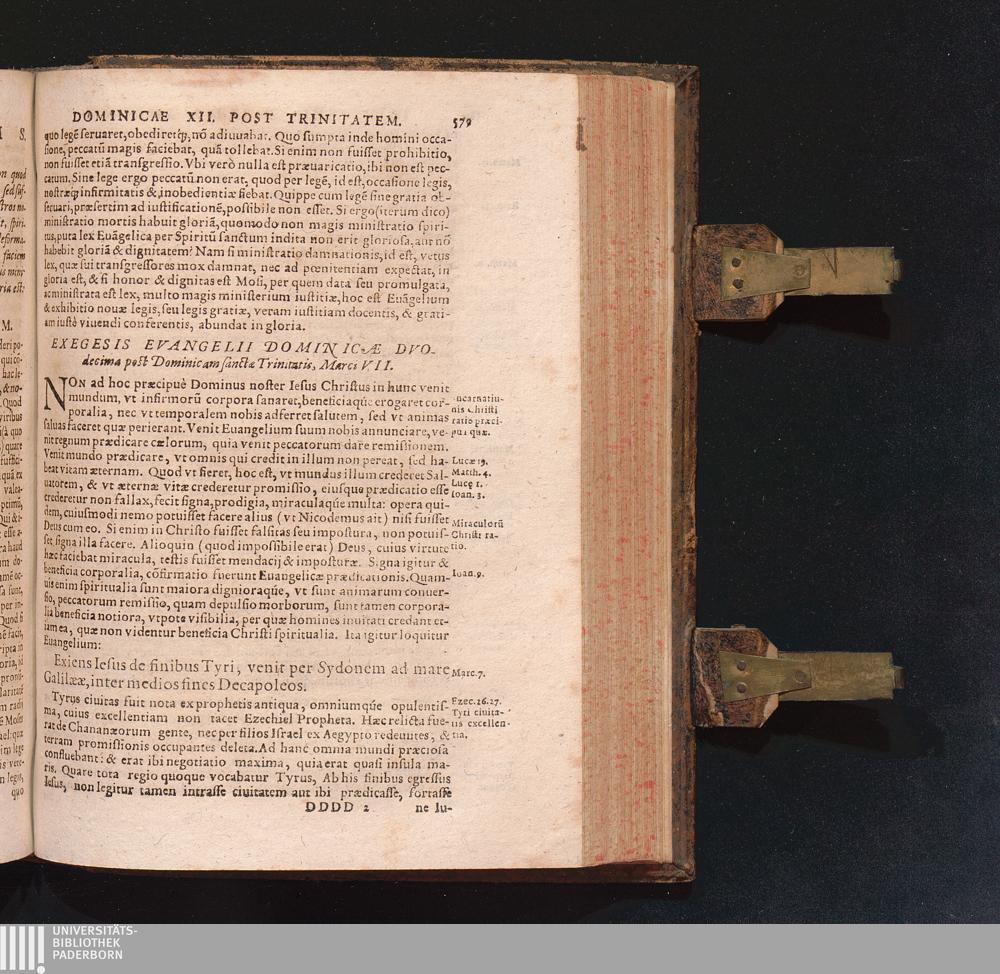 DOMINICAE XII. POST TRINITATEM. 579
quo legē seruaret, obediretq́;, nō adiuuabat. Quo sumpta inde homini occa-
sione, peccatū magis faciebat, quā tollebat. Si enim non fuisset prohibitio,
non fuisset etiā transgressio. Vbi verò nulla est præuaricatio, ibi non est pec-
catum. Sine lege ergo peccatū non erat, quod per legē, id est, occasione legis,
nostræq́; infirmitatis & inobedientiæ fiebat. Quippe cum legē sine gratia ob-
seruari, præsertim ad iustificationē, possibile non esset. Si ergo (iterum dico)
ministratio mortis habuit gloriā, quomodo non magis ministratio spiri-
tus, puta lex Euāgelica per Spiritū sanctum indita non erit gloriosa, aut nō
habebit gloriā & dignitatem? Nam si ministratio damnationis, id est, vetus
lex, quæ sui transgressores mox damnat, nec ad pœnitentiam expectat, in
gloria est, & si honor & dignitas est Mosi, per quem data seu promulgata,
acministrata est lex, multo magis ministerium iustitiæ, hoc est Euāgelium
& exhibitio nouæ legis, seu legis gratiæ, veram iustitiam docentis, & grati-
am iustè viuendi conferentis, abundat in gloria.
EXEGESIS EVANGELII DOMINICÆ DVO-
decima post Dominicam sanctæ Trinitatis, Marci VII.
NON ad hoc præcipuè Dominus noster Iesus Christus in hunc venit
mundum, vt infirmorū corpora sanaret, beneficiaq́ue erogaret cor-
poralia, nec vt temporalem nobis adferret salutem, sed vt animas
saluas faceret quæ perierant. Venit Euangelium suum nobis annunciare, ve-
nit regnum prædicare cælorum, quia venit peccatorum dare remissionem.
Venit mundo prædicare, vt omnis qui credit in illum non pereat, sed ha-
beat vitam æternam. Quod vt fieret, hoc est, vt mundus illum crederet Sal-
uatorem, & vt æternæ vitæ crederetur promissio, eiusque prædicatio esse
crederetur non fallax, fecit signa, prodigia, miraculaq́ue multa: opera qui-
dem, cuiusmodi nemo potuisset facere alius (vt Nicodemus ait) nisi fuisset
Deus cum eo. Si enim in Christo fuisset falsitas seu impostura, non potuis-
set signa illa facere. Alioquin (quod impossibile erat) Deus, cuius virtute
hæc faciebat miracula, testis fuisset mendacij & imposturæ. Signa igitur &
beneficia corporalia, cōfirmatio fuerunt Euangelicæ prædicationis. Quam-
uis enim spiritualia sunt maiora dignioraq́ue, vt sunt animarum conuer-
sio, peccatorum remissio, quam depulsio morborum, sunt tamen corpora-
lia beneficia notiora, vtpote visibilia, per quæ homines inuitati credant et-
iam ea, quæ non videntur beneficia Christi spiritualia. Ita igitur loquitur
Euangelium:
Incarnatiu-
nis Christi
ratio præci-
pua quæ.
Lucæ 19.
Matth. 4.
Lucę 1.
Ioan. 3.
Miraculorū
Christi ra-
tio.
Ioan. 9.
Exiens Iesus de finibus Tyri, venit per Sydonem ad mare
Galilææ, inter medios fines Decapoleos.
Marc. 7.
Tyrus ciuitas fuit nota ex prophetis antiqua, omniumq́ue opulentis-
ma, cuius excellentiam non tacet Ezechiel Propheta. Hæc relicta fue-
rat de Chananæorum gente, nec per filios Israel ex Aegypto redeuntes, &
terram promissionis occupantes deleta. Ad hanc omnia mundi præciosa
confluebant: & erat ibi negotiatio maxima, quia erat quasi insula ma-
ris. Quare tota regio quoque vocabatur Tyrus, Ab his finibus egressus
Iesus, non legitur tamen intrasse ciuitatem aut ibi prædicasse, fortasse
Ezec. 26. 27.
Tyri ciuita-
tis excellen-
tia.
DDDD 2 ne Iu-
UNIVERSITÄTS-
BIBLIOTHEK
PADERBORN